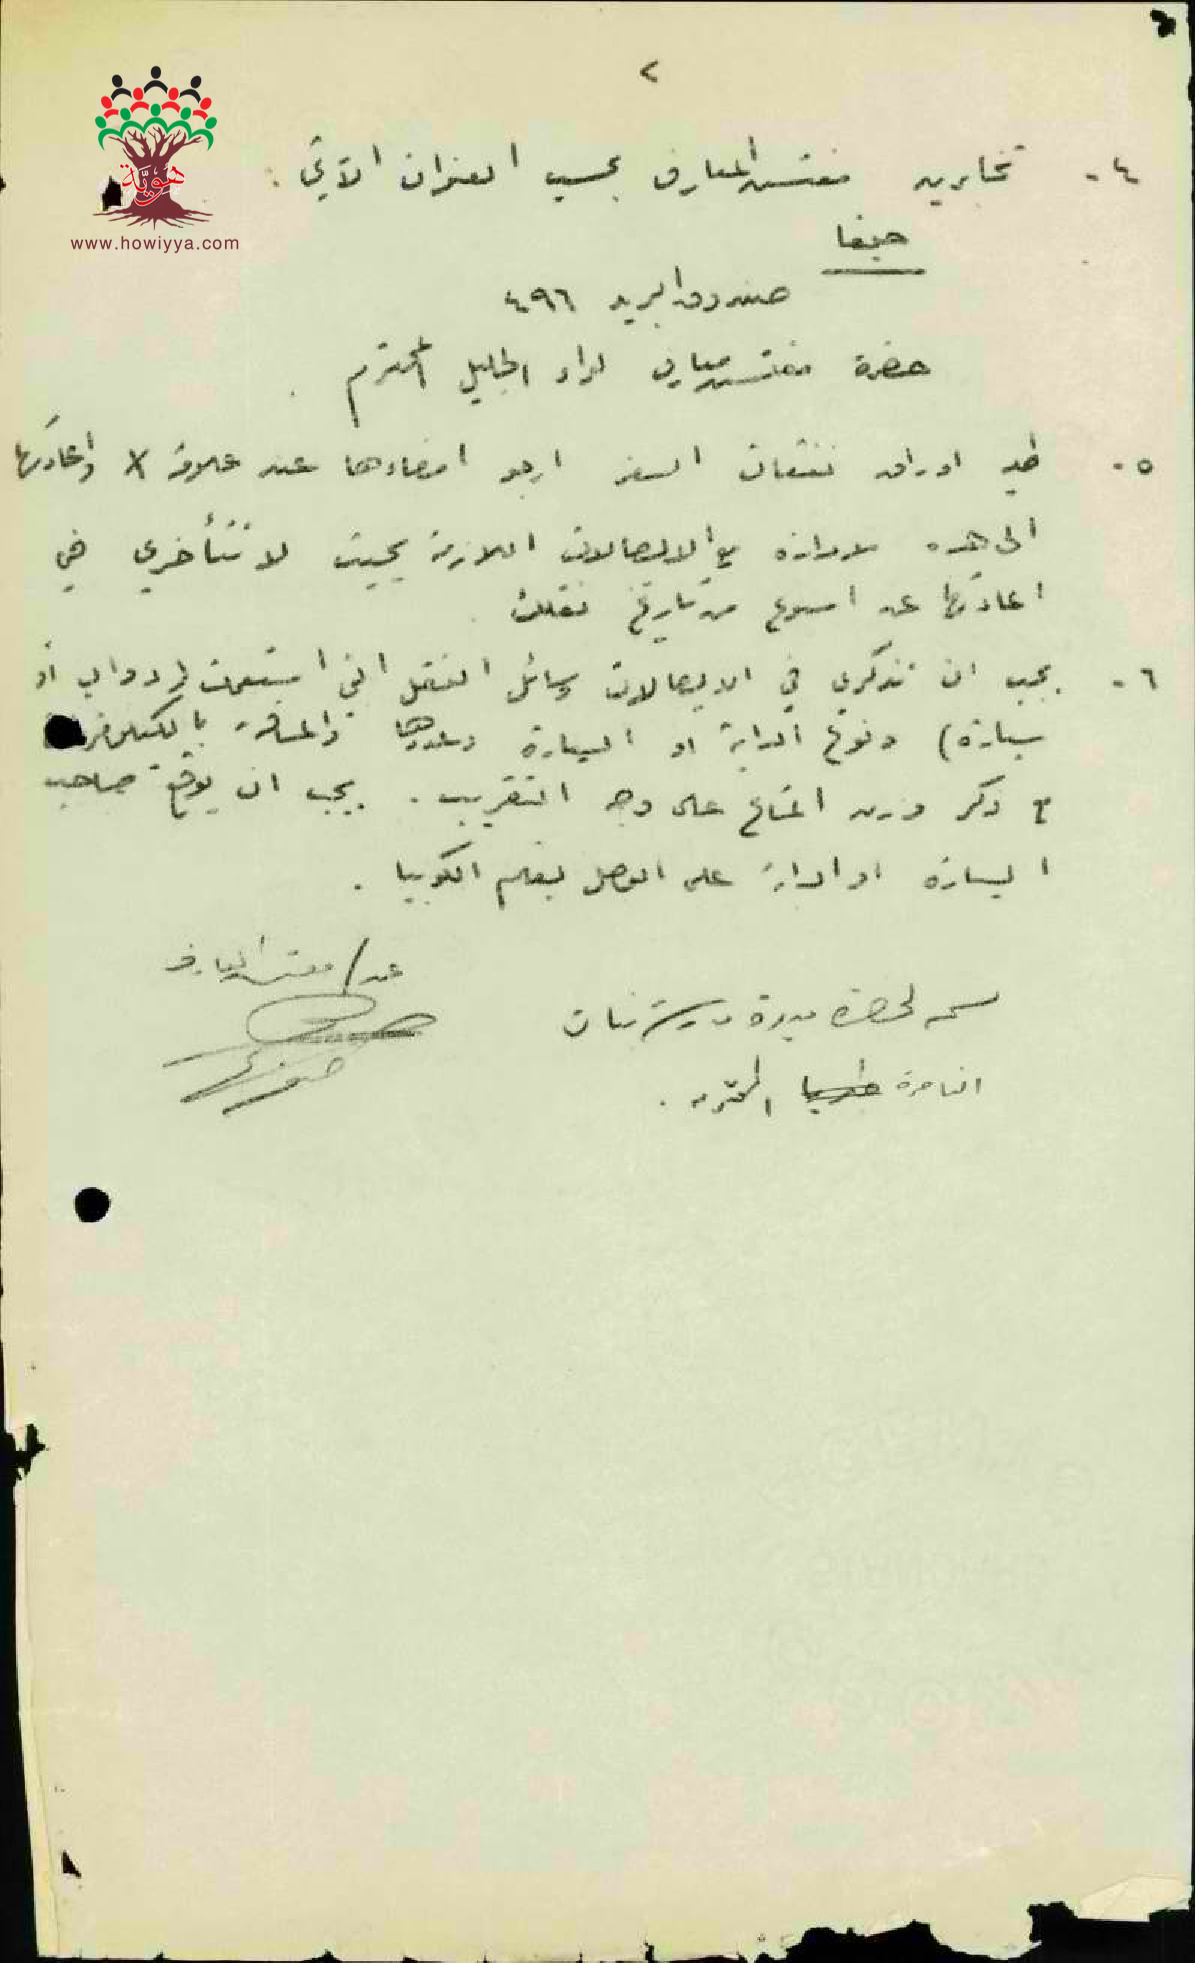 ٢
هوية
www.howiyya.com
٤- تخابرين مفتش المعارف بحسب العنوان الآتي :
حيفا
صندوق البريد ٤٩٦
حضرة مفتش معارف لواء الجليل المحترم .
٥- طيه اوراق نفقات السفر ارجو امضاءها عند علامة X واعادتها
الى هذه الادارة مع الايصالات اللازمة بحيث لا تتأخري في
اعادتها عن اسبوع من تاريخ نقلك .
٦- يجب ان تذكري في الايصالات وسائل النقل التي استعملت (دواب أو
سيارة) ونوع الدابة او السيارة وعددها والمسافة بالكيلومترات
مع ذكر وزن المتاع على وجه التقريب . يجب ان يوقع صاحب
السيارة او الدابة على الوصل بقلم الكوبيا .
عن/ مفتش المعارف
نسخة لحضرة مديرة مدرسة بنات
الناصرة المحترمة .